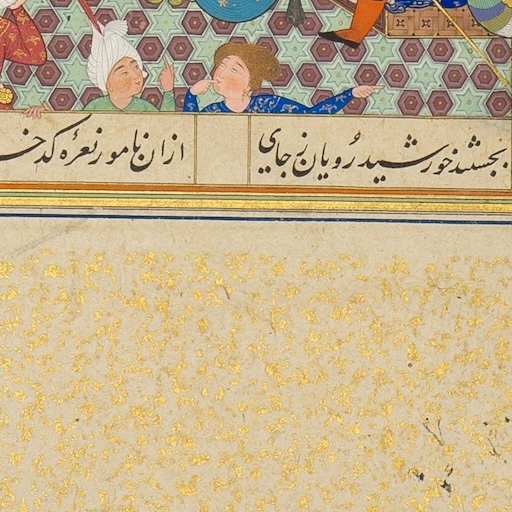 بجستند خورشید رویان ز جای
ازان نامور نعرهٔ کدخ